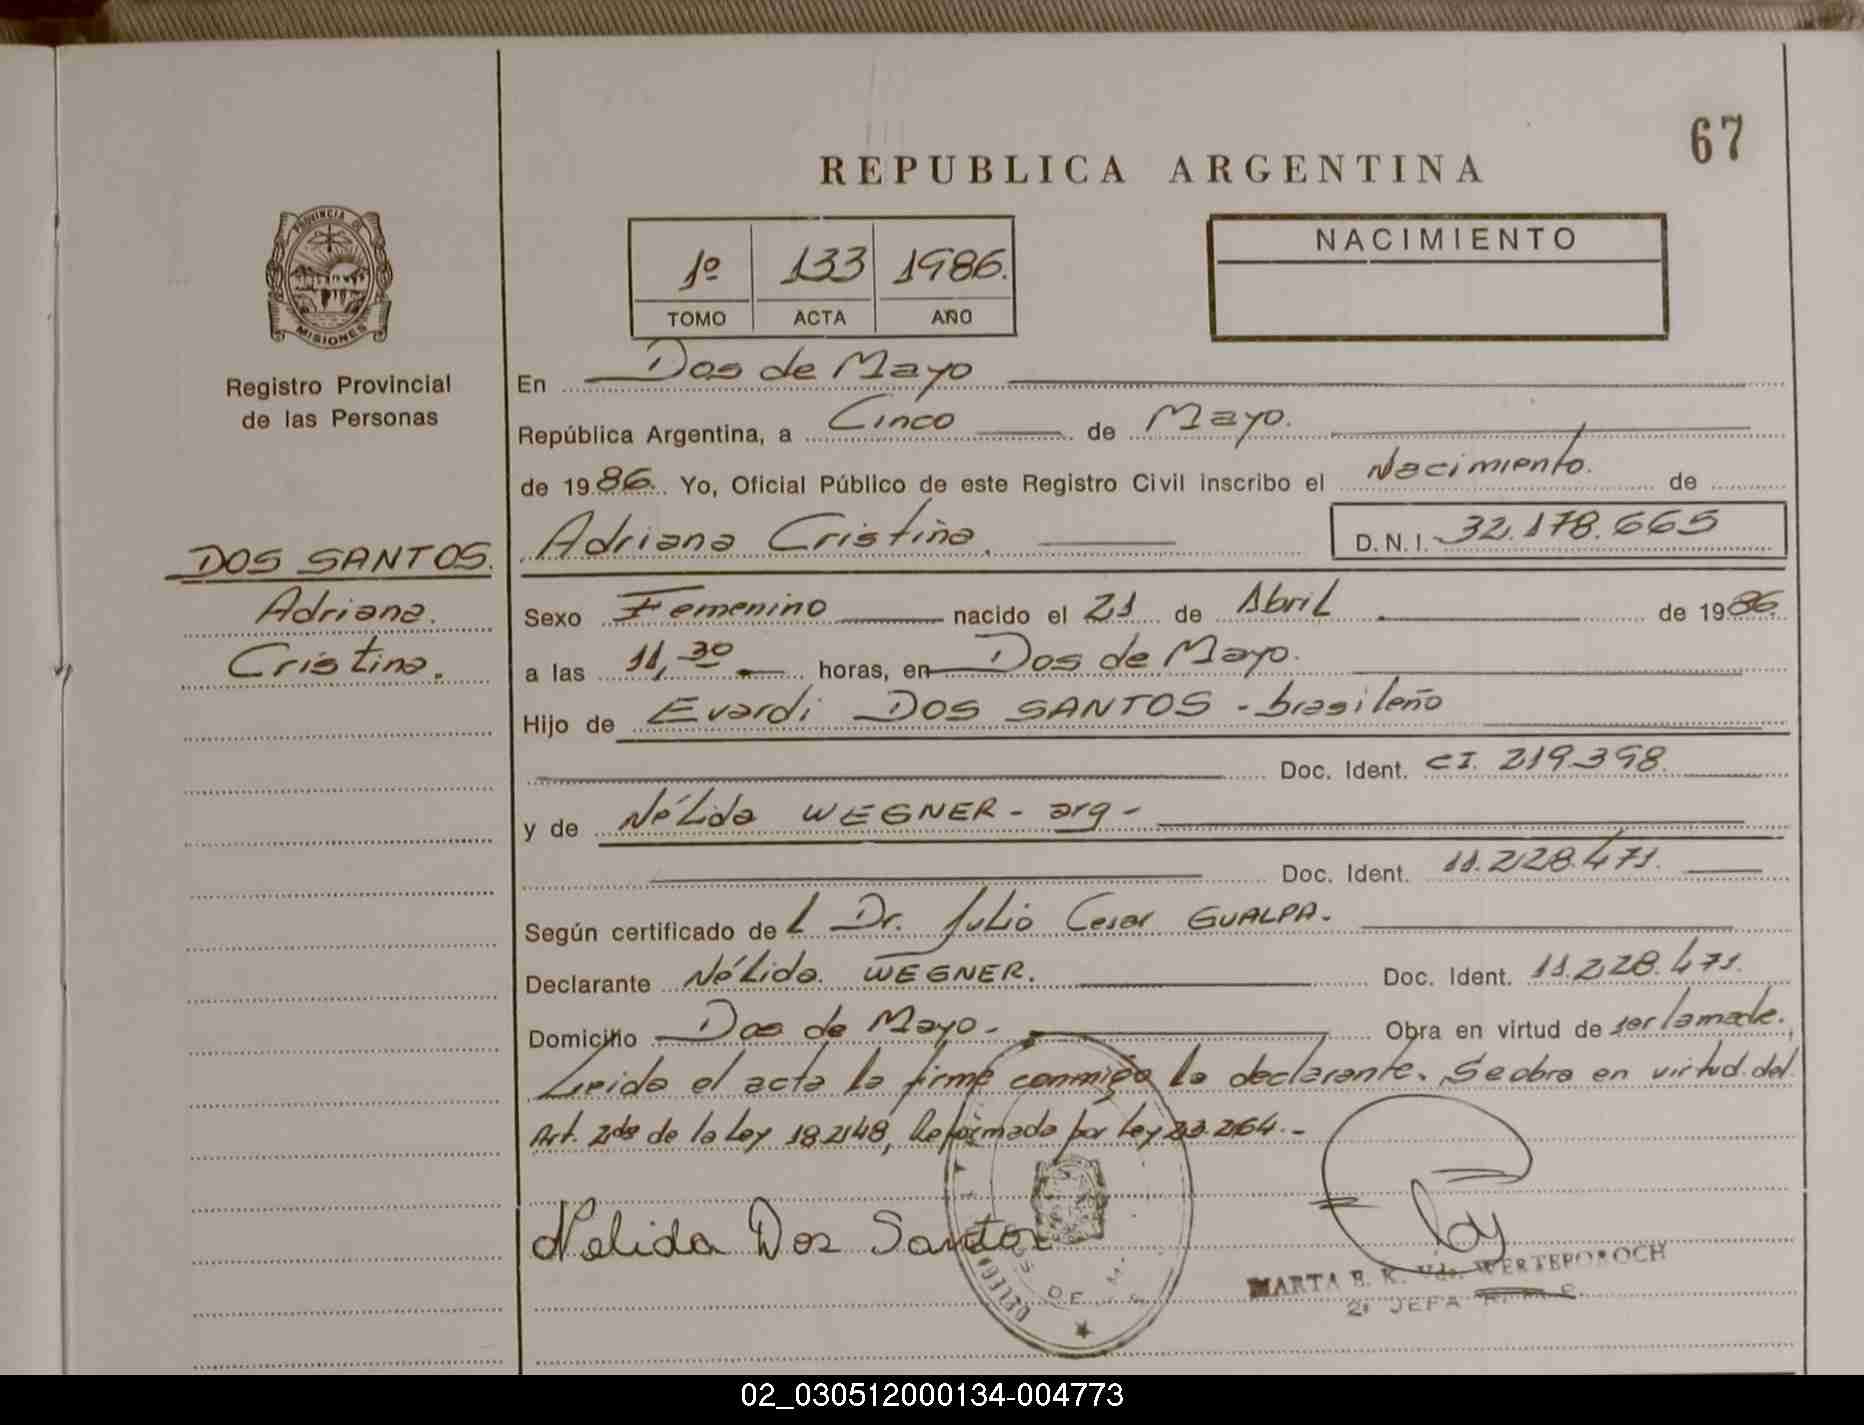 67
REPUBLICA ARGENTINA
PROVINCIA DE
MISIONES
Registro Provincial
de las Personas
1º 133 1986.
TOMO ACTA AÑO
NACIMIENTO
En Dos de Mayo
República Argentina, a Cinco de Mayo.
de 1986. Yo, Oficial Público de este Registro Civil inscribo el Nacimiento. de
Adriana Cristina. D.N.I. 32.178.665
DOS SANTOS.
Adriana.
Cristina.
Sexo Femenino nacido el 21 de Abril de 1986.
a las 11,30 horas, en Dos de Mayo.
Hijo de Evardi DOS SANTOS - brasileño
Doc. Ident. CI. 219.398.
y de Nélida WEGNER - arg -
Doc. Ident. 11.228.471.
Según certificado del Dr. Julio Cesar GUALPA.
Declarante Nélida. WEGNER. Doc. Ident. 11.228.471.
Domicilio Dos de Mayo. Obra en virtud de ser la madre.
Leida el acta la firma conmigo la declarante. Se obra en virtud del
Art. 2do de la Ley 18.248, Reformada por Ley 23.264. -
Nelida Dos Santos
MARTA E. K. Vda. WERTEPOROCH
JEFA
02_030512000134-004773